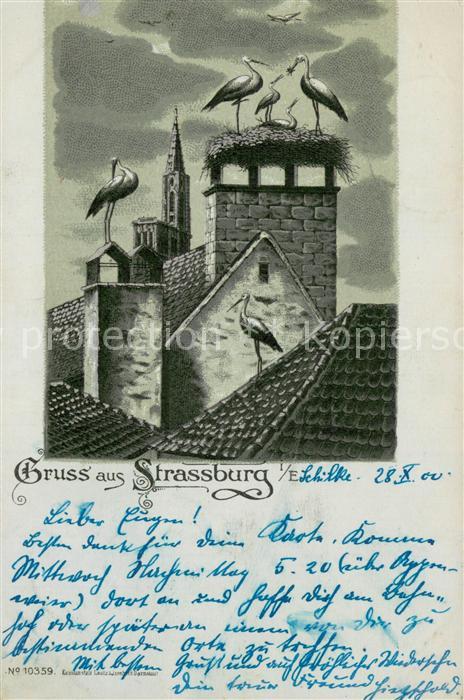 Gruss aus Strassburg i/E Schilke. 28.X.00.
Lieber Eugen!
Besten Dank für Deine Karte. Komme
Mittwoch Nachmittag 5.20 (über Appen-
weier) dort an und hoffe Dich am Bahn-
hof oder später an einem von Dir zu
bestimmenden Orte zu treffen.
Mit bestem Gruß und auf fröhliches Wiedersehn
Dein treuer Freund
No 10359.